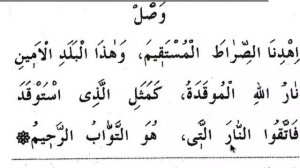 وَصْلٌ
اِهْدِنَا الصِّرَاطَ الْمُسْتَقِيمَ، وَهٰذَا الْبَلَدِ الْاَمِينِ
نَارُ اللهِ الْمُوقَدَةُ، كَمَثَلِ الَّذِى اسْتَوْقَدَ
فَاتَّقُوا النَّارَ الَّتِى، هُوَ التَّوَّابُ الرَّحِيمُ ❁